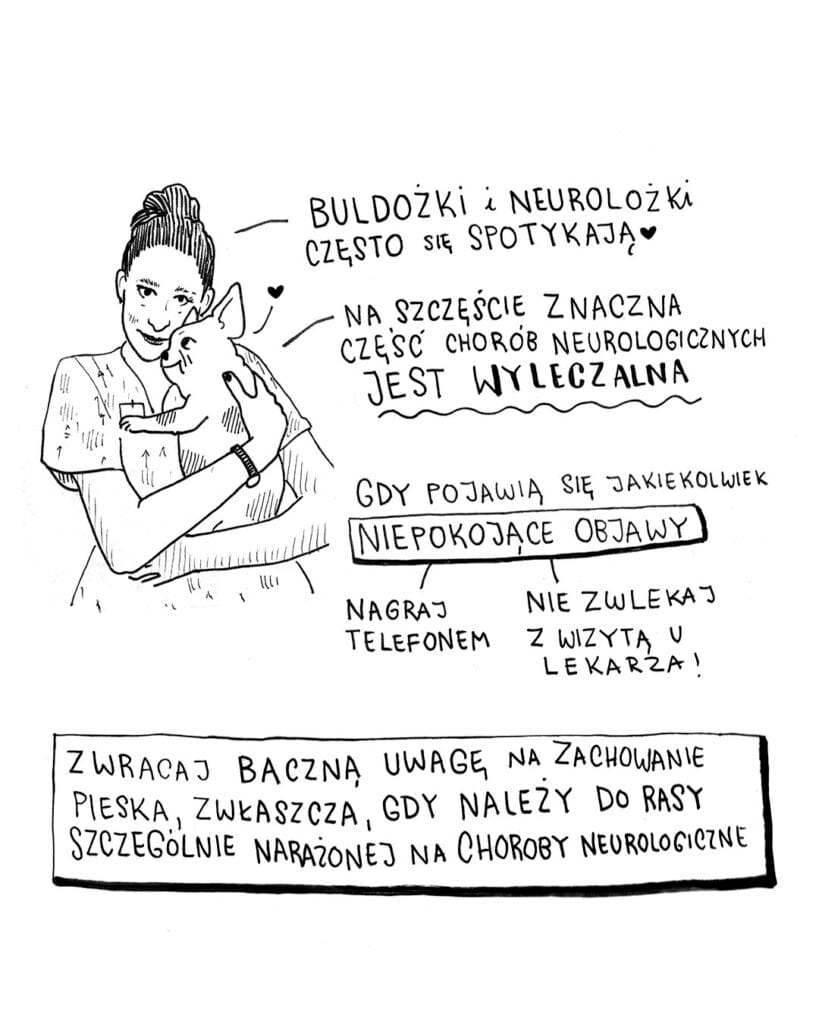 BULDOŻKI i NEUROLOŻKI
CZĘSTO SIĘ SPOTYKAJĄ♥
NA SZCZĘŚCIE ZNACZNA
CZĘŚĆ CHORÓB NEUROLOGICZNYCH
JEST WYLECZALNA
GDY POJAWIĄ SIĘ JAKIEKOLWIEK
NIEPOKOJĄCE OBJAWY
NAGRAJ
TELEFONEM
NIE ZWLEKAJ
Z WIZYTĄ U
LEKARZA!
ZWRACAJ BACZNĄ UWAGĘ NA ZACHOWANIE
PIESKA, ZWŁASZCZA, GDY NALEŻY DO RASY
SZCZEGÓLNIE NARAŻONEJ NA CHOROBY NEUROLOGICZNE